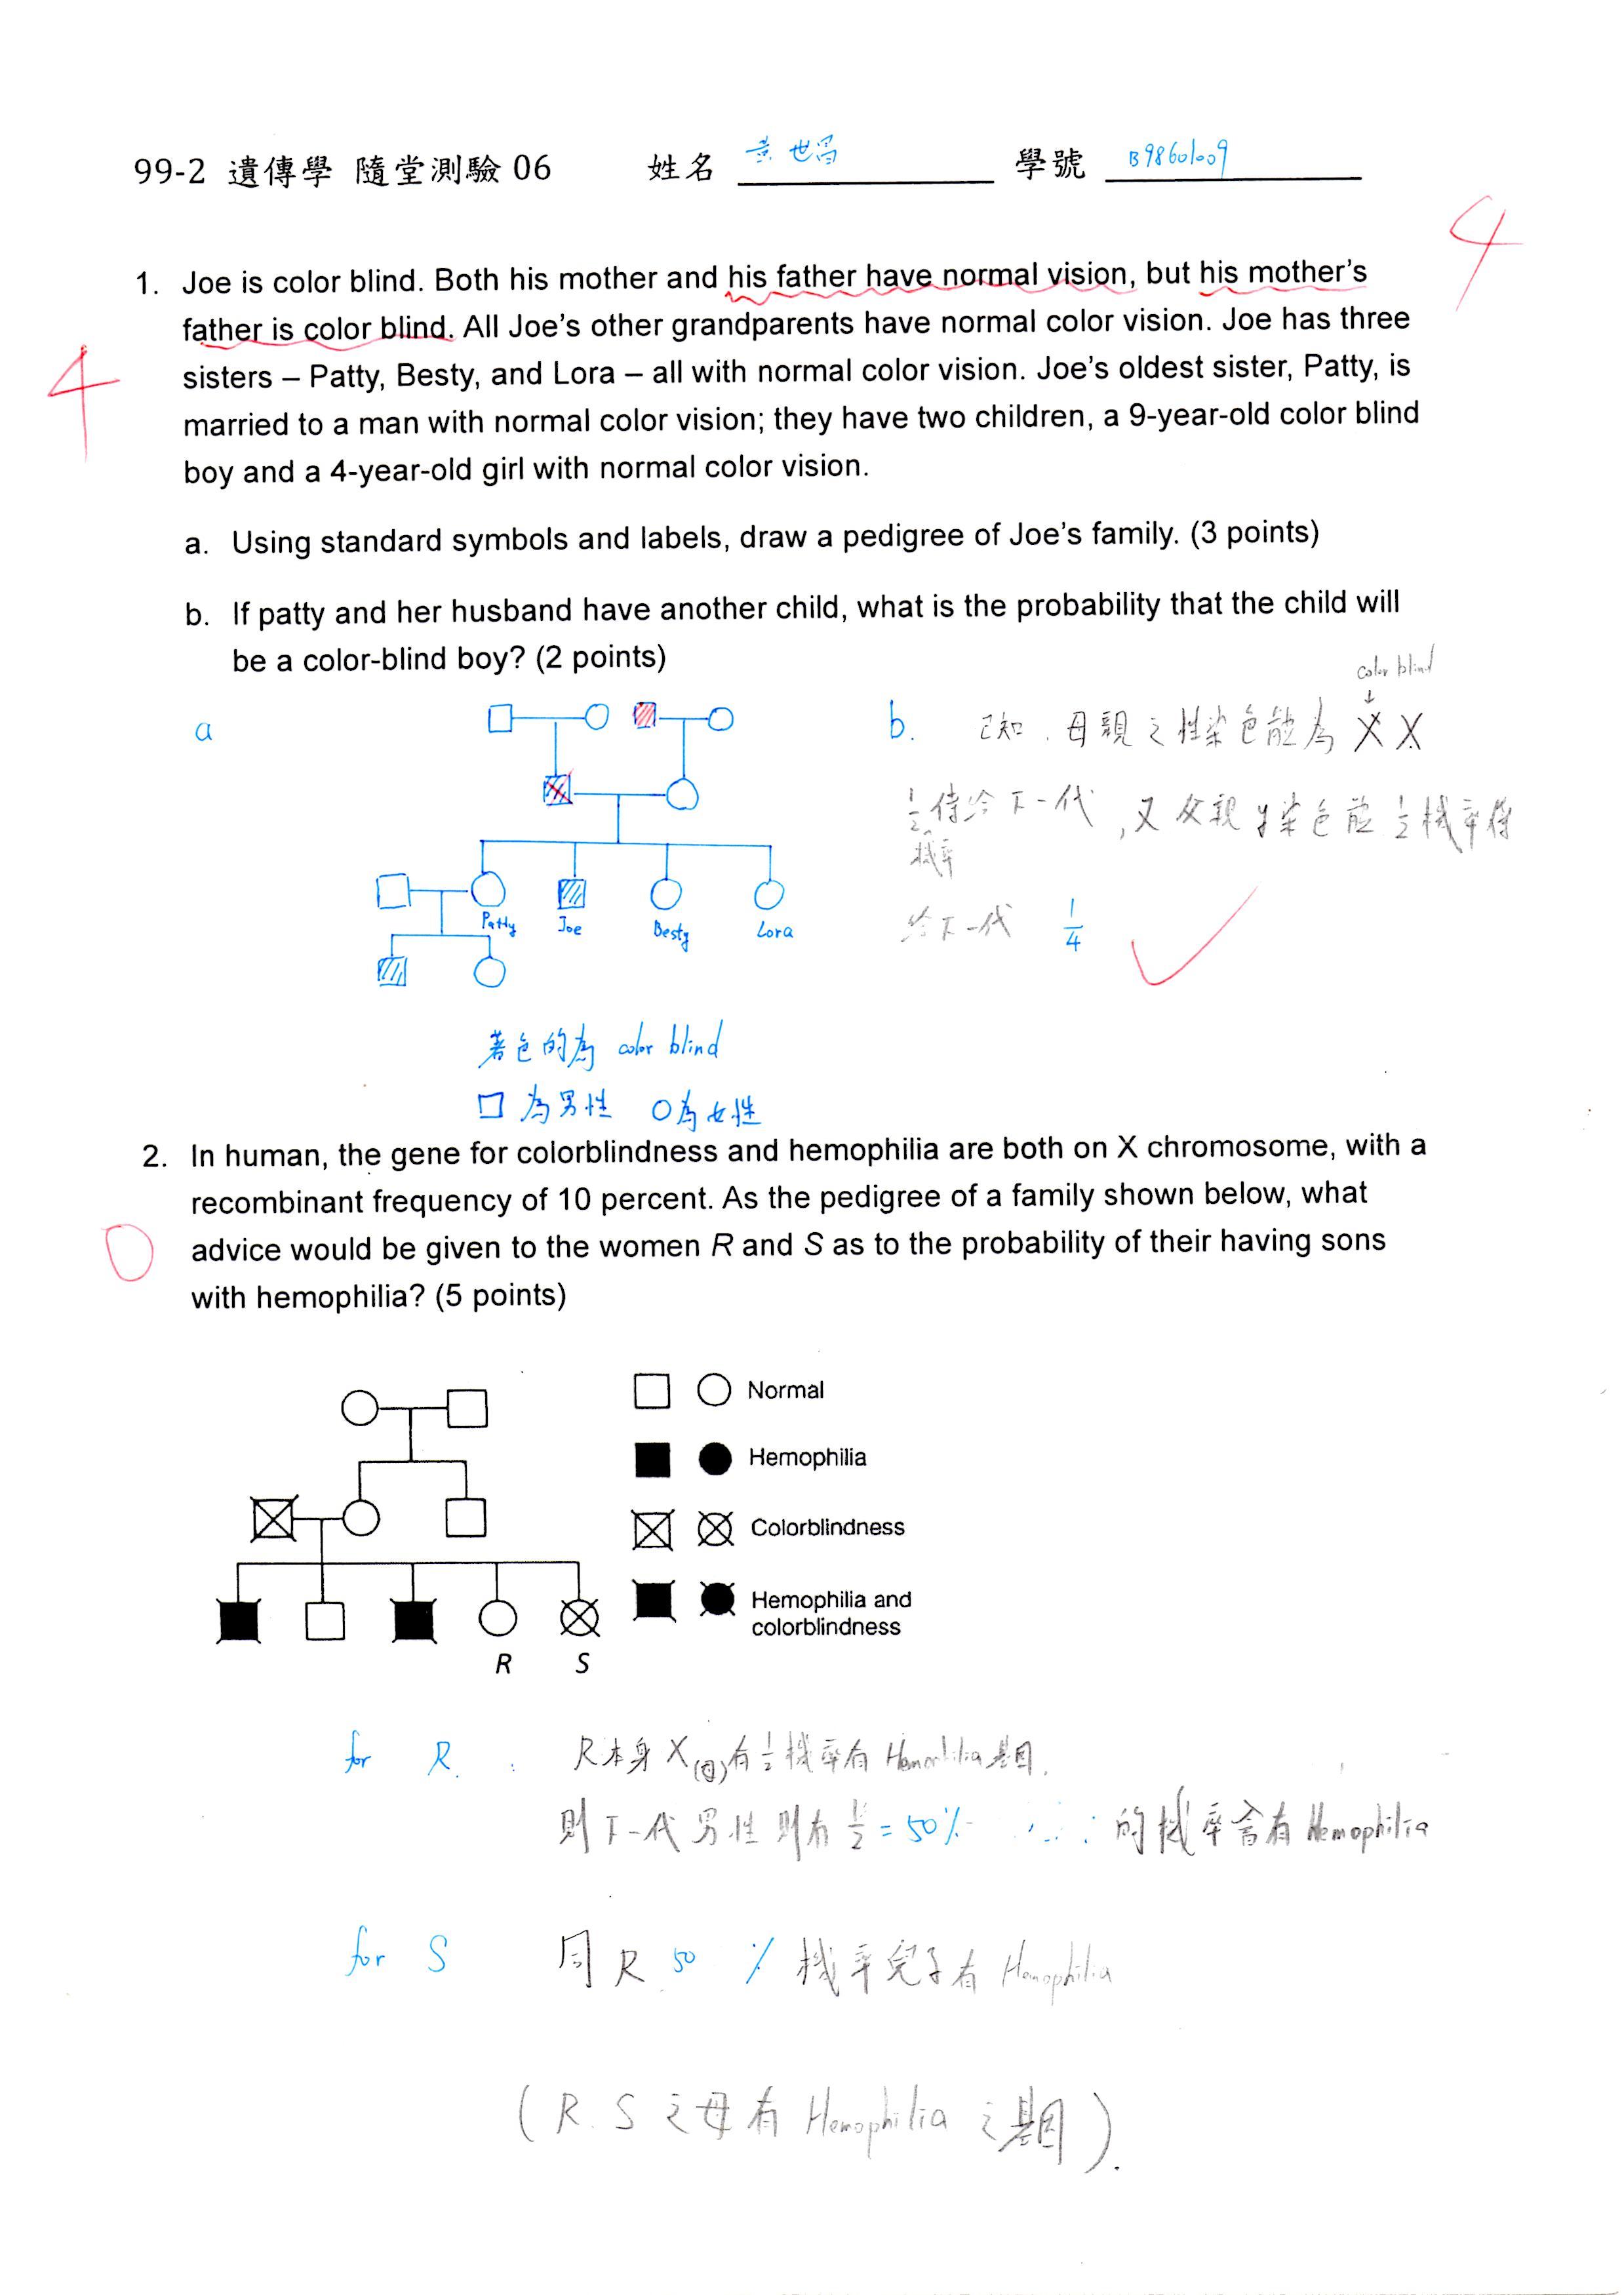 99-2 遺傳學 隨堂測驗 06 姓名 黃世昌 學號 B98601009
4
1. Joe is color blind. Both his mother and his father have normal vision, but his mother's
father is color blind. All Joe's other grandparents have normal color vision. Joe has three
4
sisters – Patty, Besty, and Lora – all with normal color vision. Joe's oldest sister, Patty, is
married to a man with normal color vision; they have two children, a 9-year-old color blind
boy and a 4-year-old girl with normal color vision.
a. Using standard symbols and labels, draw a pedigree of Joe's family. (3 points)
b. If patty and her husband have another child, what is the probability that the child will
be a color-blind boy? (2 points)
a
Patty Joe Besty Lora
著色的為 color blind
□ 為男性 O為女性
color blind
↓
b. 已知. 母親之性染色體為 X X
1/2 傳給下一代, 又父親 y染色體 1/2 機率傳
機率
給下一代 1/4
2. In human, the gene for colorblindness and hemophilia are both on X chromosome, with a
recombinant frequency of 10 percent. As the pedigree of a family shown below, what
0
advice would be given to the women R and S as to the probability of their having sons
with hemophilia? (5 points)
Normal
Hemophilia
Colorblindness
Hemophilia and
colorblindness
R S
for R : R本身 X(母)有 1/2 機率有 Hemophilia基因.
則下一代男性則有 1/2 = 50% 的機率會有 Hemophilia
for S 同 R 50 % 機率兒子有 Hemophilia
(R.S 之母有 Hemophilia 之基因).